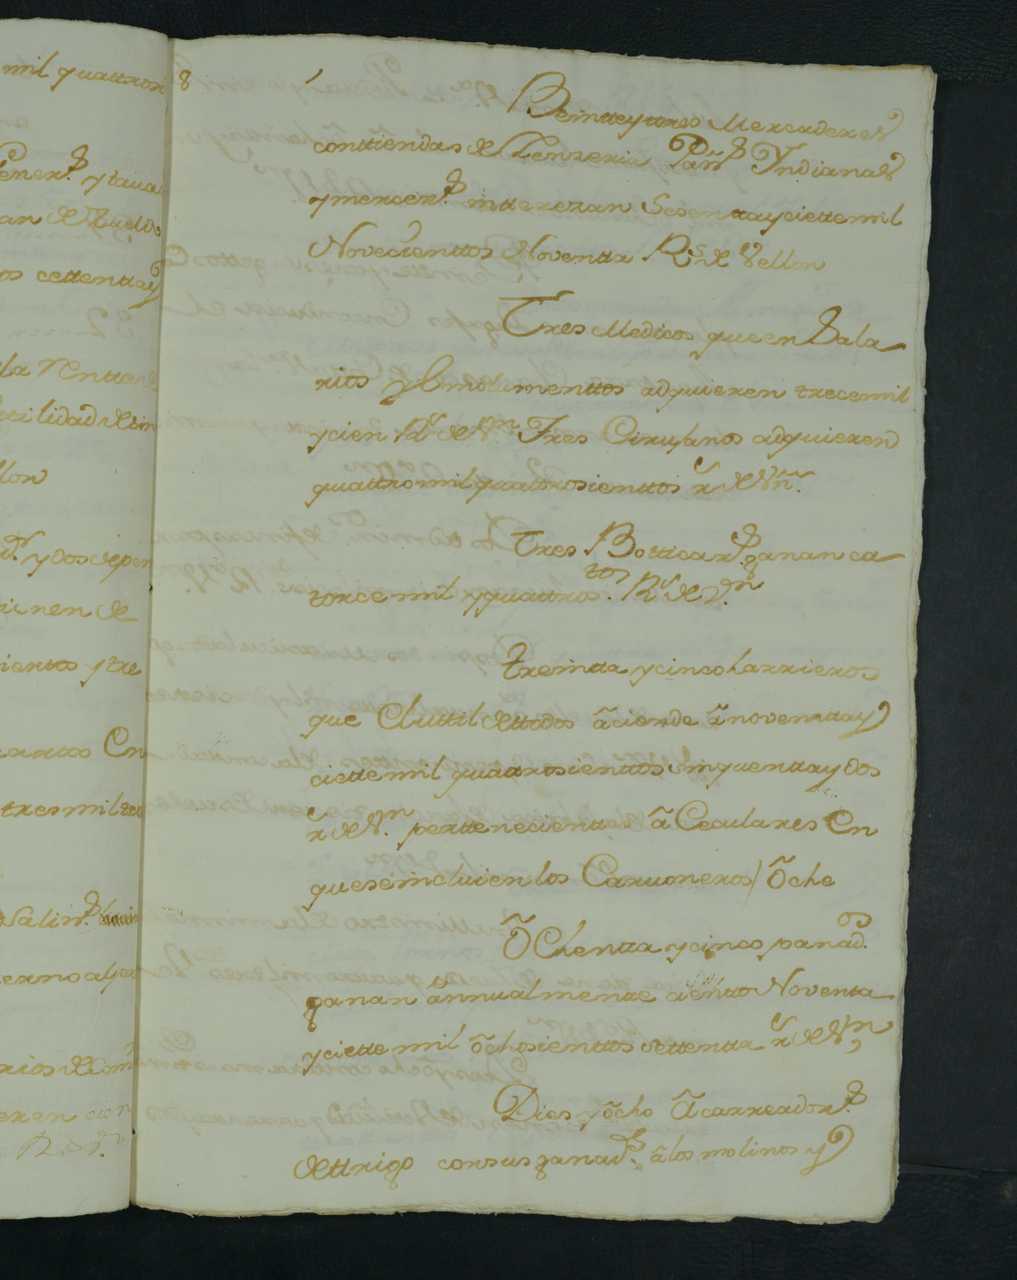 mil quattros
ener.s y tava
an de suelds
os cettenta y
la rentta
tilidad de
llon
y dos depen
tienen de
ientos y tre
En
tres mil
Salin.s
erno al
rios de
eren
R.s de v.n
Beintteytres Mercaderes
con tiendas de Lenzeria Pañ.s Yndianas
y mercer.s interezan Secentayciettemil
Novecienttos Noventa R.s de Vellon
Tres Medicos que en Sala
rios y Emolumenttos adquieren trecemil
ycien R.s de V.n Tres Cirujanos adquieren
quattro mil quatrosienttos r.s de V.n
Tres Botticar.s ganan ca
torce mil y quattros.tos R.s de V.n
treintta y cinco harrieros
que el uttil de ttodos āciende ā noventtay
ciettemil quattrosienttos cinquentaydos
r.s de V.n pertenecientes ā Ceculares En
que se incluien los Carvoneros / ōche
ōChenta y cinco panad.os
ganan ānnualmente ciento Noventa
yciette mil ōchosienttos settentta r.s de V.n
Dies y ōcho ācarreador.s
de ttrigo con sus ganad.s ā los molinos y